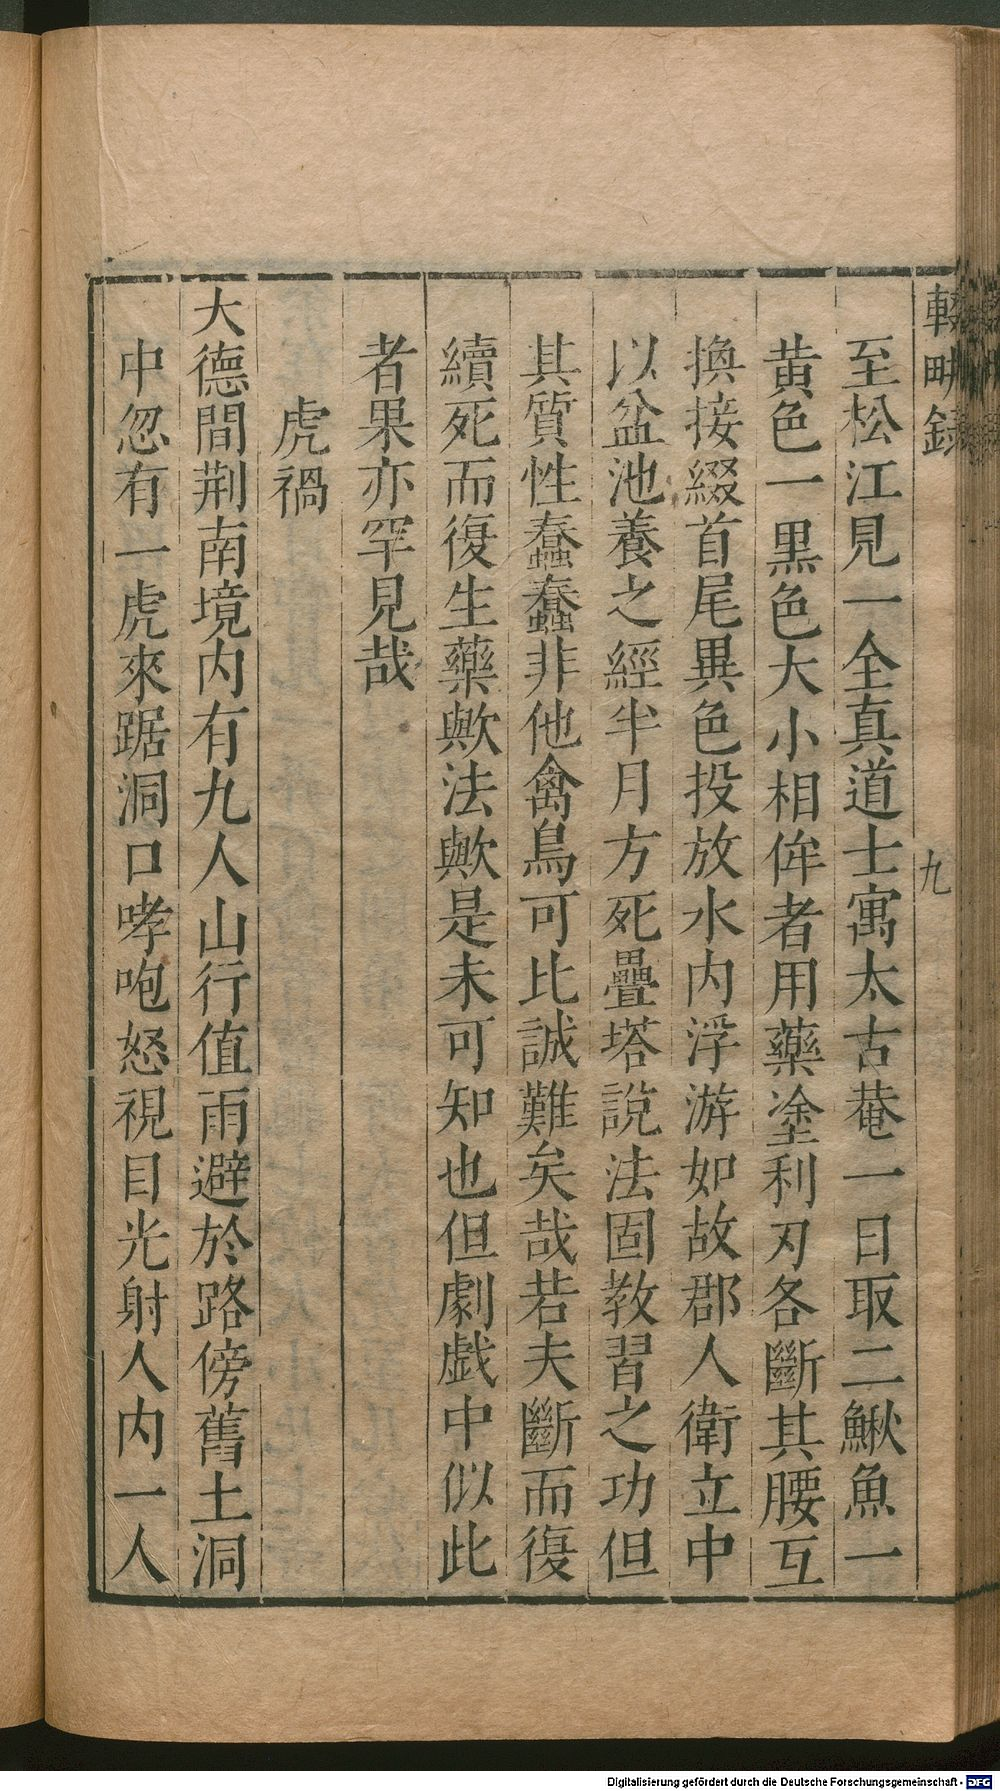 輟畊錄
九
至松江見一全真道士寓太古菴一日取二鰍魚一
黃色一黑色大小相侔者用藥塗利刃各斷其腰互
換接綴首尾異色投放水內浮游如故郡人衛立中
以盆池養之經半月方死疊塔說法固教習之功但
其質性蠢蠢非他禽鳥可比誠難矣哉若夫斷而復
續死而復生藥歟法歟是未可知也但劇戲中似此
者果亦罕見哉
虎禍
大德間荆南境內有九人山行值雨避於路傍舊土洞
中忽有一虎來踞洞口哮咆怒視目光射人內一人
Digitalisierung gefördert durch die Deutsche Forschungsgemeinschaft - DFG